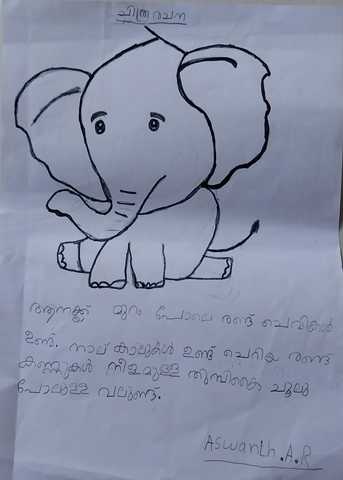 ചിത്ര രചന
ആനക്ക് മുറം പോലെ രണ്ട് ചെവികൾ
ഉണ്ട്. നാല് കാലുകൾ ഉണ്ട് ചെറിയ രണ്ട്
കണ്ണുകൾ നീളമുള്ള തുമ്പികൈ ചൂലു
പോലുള്ള വാലുണ്ട്.
Aswanth.A.R